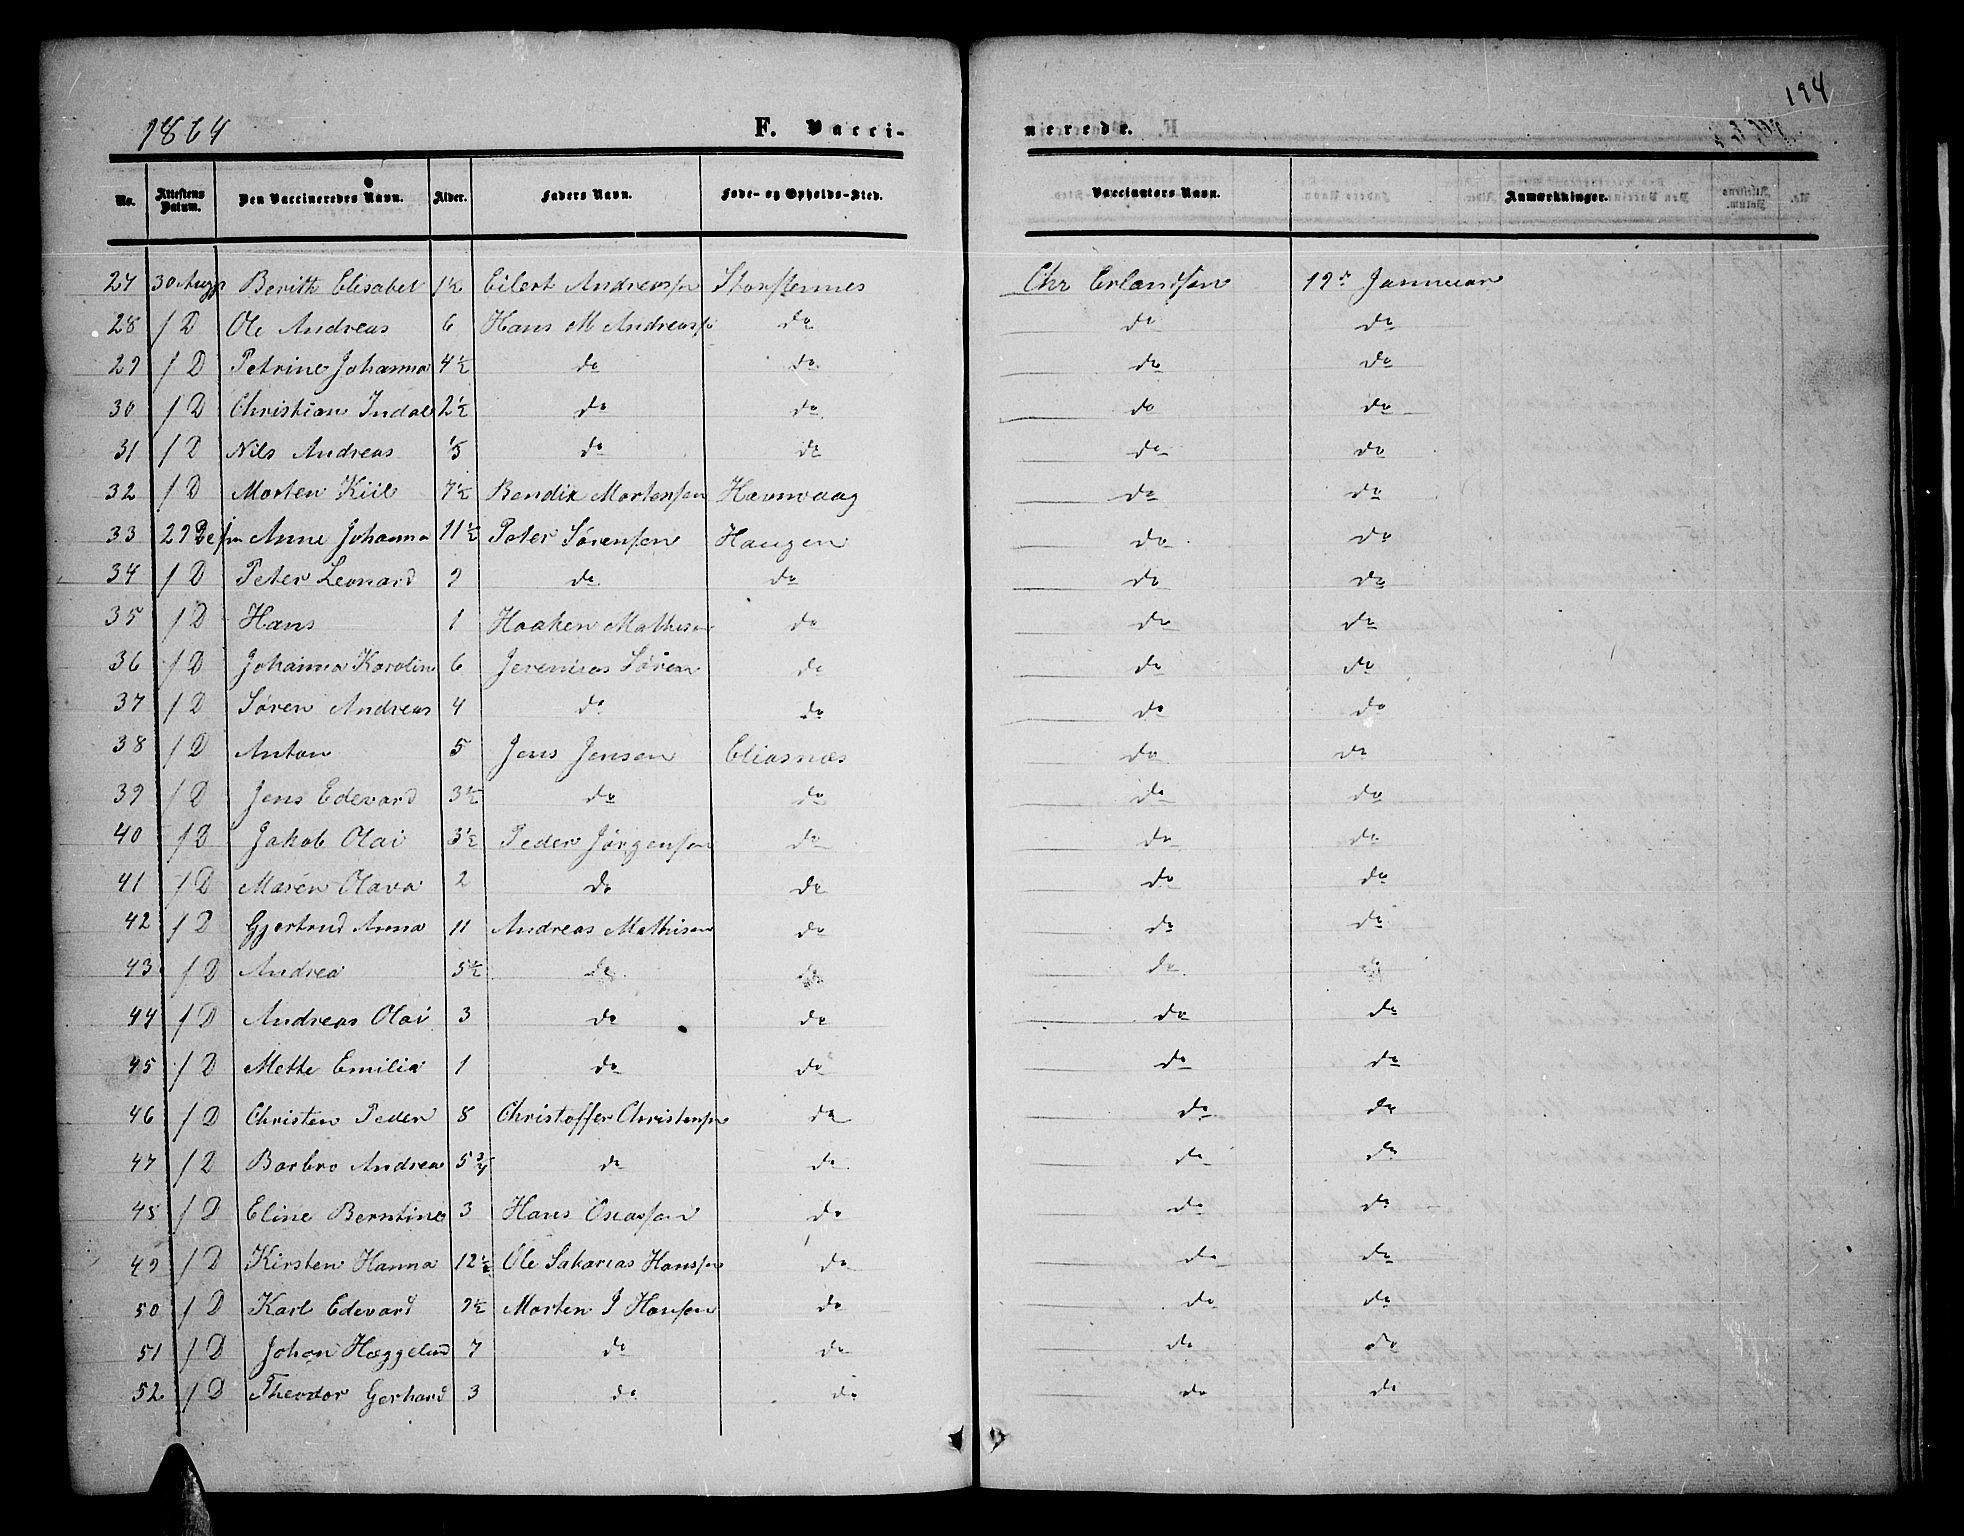 194
1864 F. Vacci- nerede.
No. Attestens Datum. Den Vaccineredes Navn. Alder. Faders Navn. Føde- og Opholds-Sted. Vaccinators Navn. Anmærkninger.
27 30 Augs Berith Elisabet 1½ Eilert Andreassen Storstennes Chr Erlandsen 19de Januuar
28 / D Ole Andreas 6 Hans M Andreass do do do
29 / D Petrine Johanna 4½ do do do do
30 / D Christian Indal 2½ do do do do
31 / D Nils Andreas ⅓ do do do do
32 / D Morten Kiil 7½ Bendix Mortensen Havnvaag do do
33 29 Anne Johanna 11½ Peter Sørensen Haugen do do
34 / D Peter Leonard 9 do do do do
35 / D Hans 1 Haaken Mathisen do do do
36 / D Johanna Karolin 6 Jeremias Søren do do do
37 / D Søren Andreas 4 do do do do
38 / D Anton 5 Jens Jensen Eliasnæs do do
39 / D Jens Edevard 3½ do do do do
40 / D Jakob Olai 3½ Peder Jørgensen do do do
41 / D Maren Olava 2 do do do do
42 / D Gjertrud Anna 11 Andreas Mathisen do do do
43 / D Andrea 5½ do do do do
44 / D Andreas Olai 3 do do do do
45 / D Mette Emilia 1 do do do do
46 / D Christen Peder 8 Christoffer Christensen do do do
47 / D Barbro Andrea 5¾ do do do do
48 / D Eline Berntine 3 Hans Oseassen do do do
49 / D Kirsten Hanna 12½ Ole Sakarias Hanssen do do do
50 / D Karl Edevard 9½ Morten J Hansen do do do
51 / D Johan Hæggelund 7 do do do do
52 / D Theodor Gerhard 3 do do do do